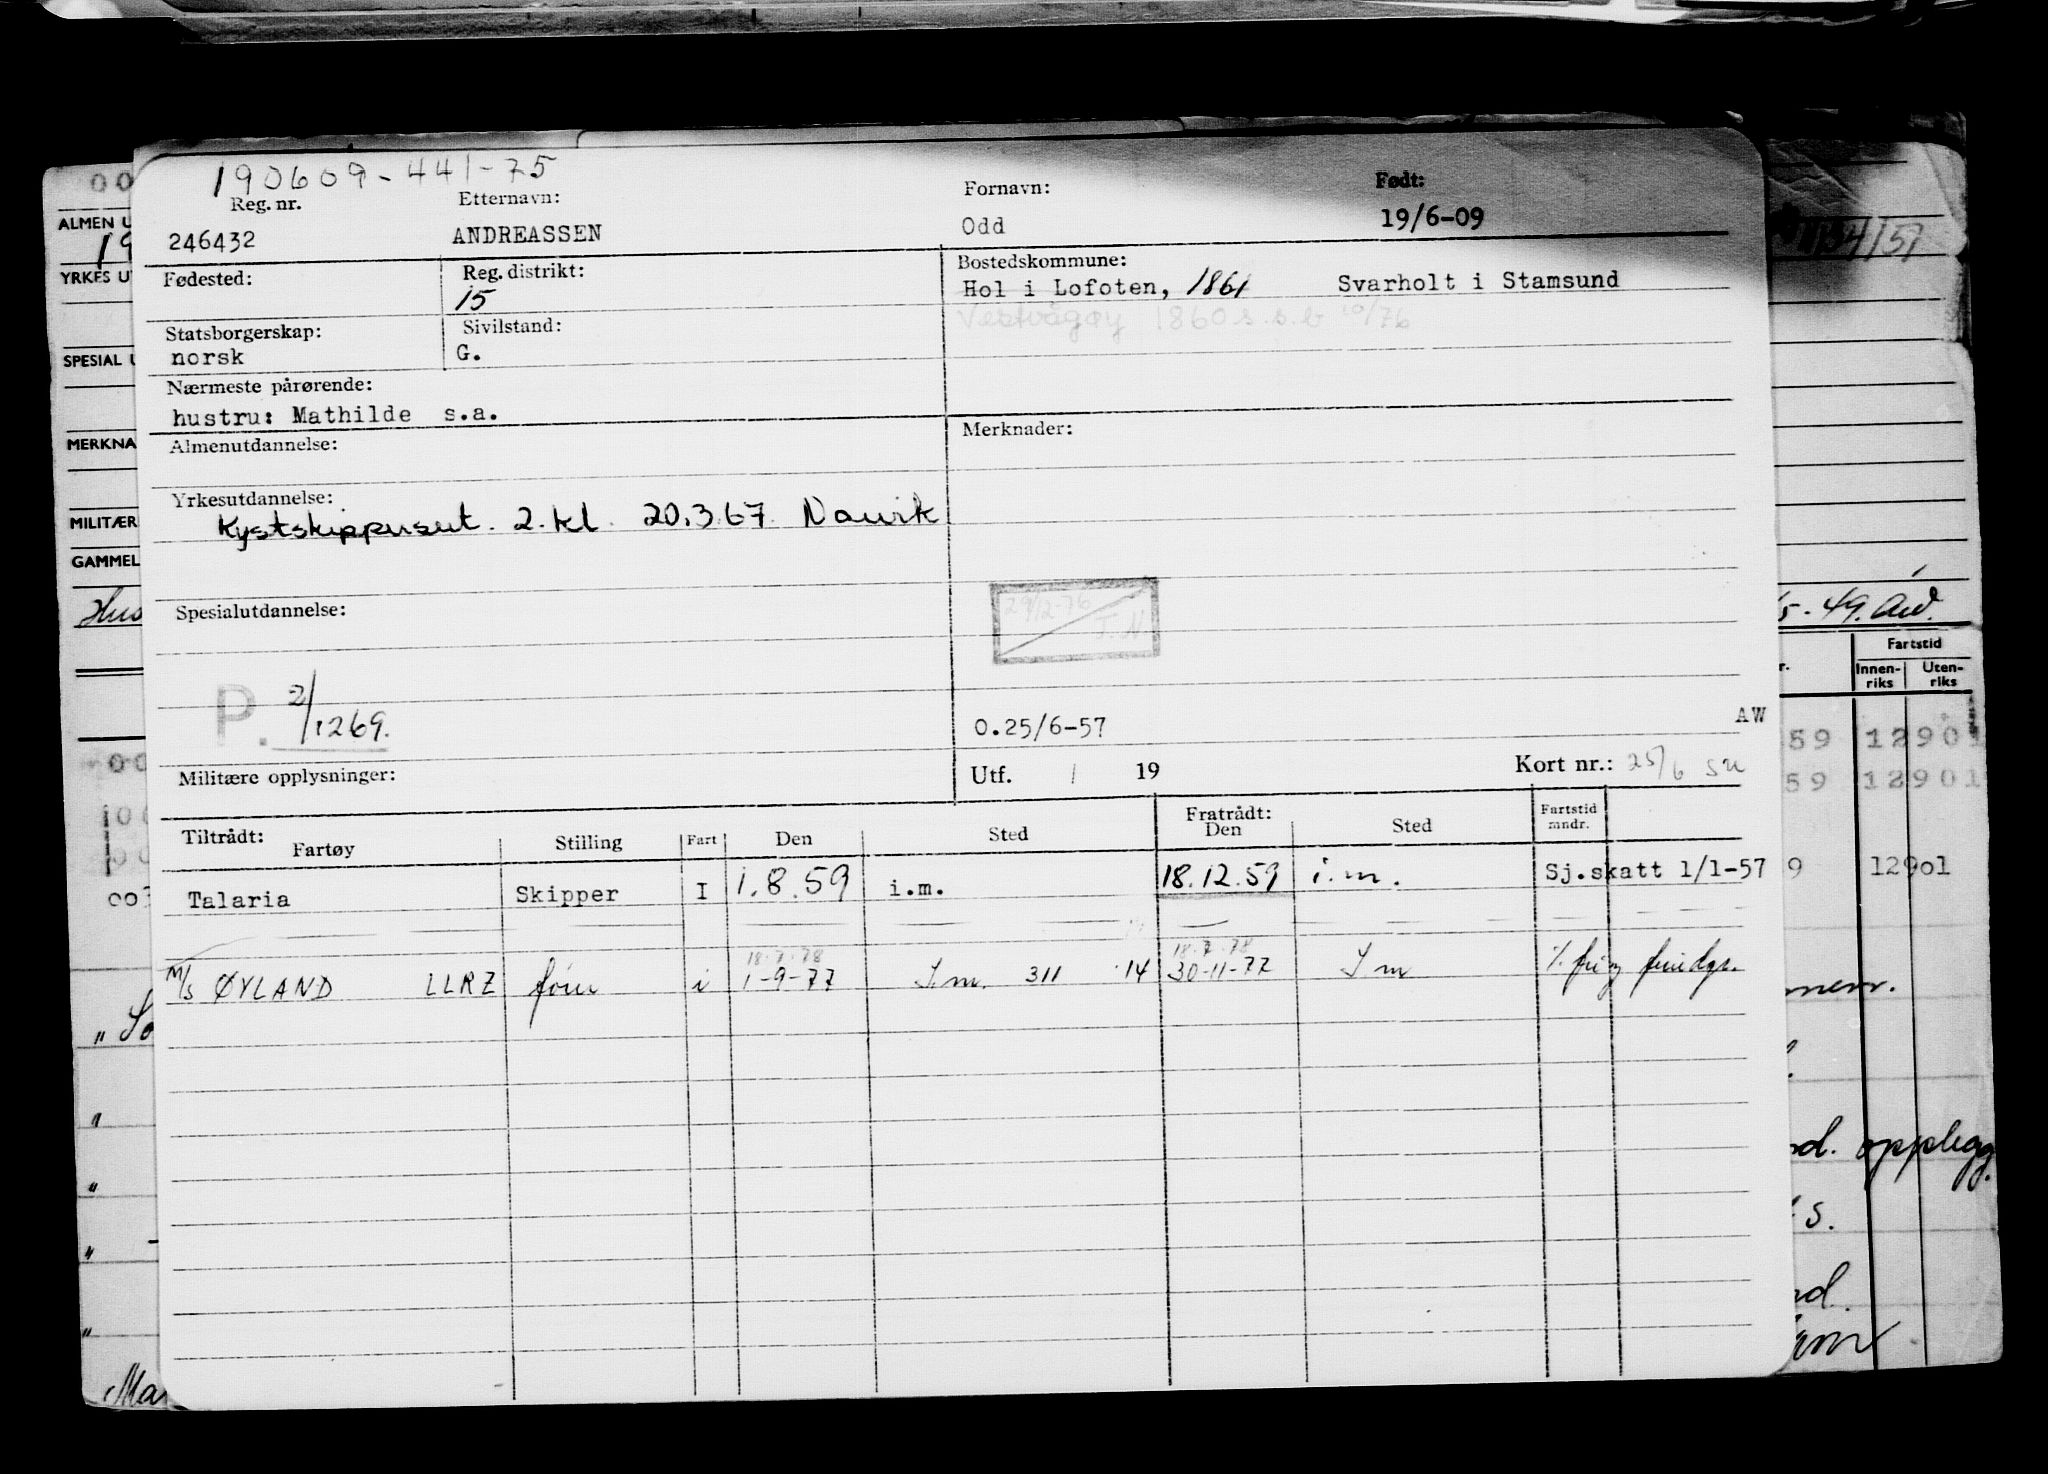 190609-441-75
Reg. nr. Etternavn: Fornavn: Født:
246432 ANDREASSEN Odd 19/6-09
Fødested: Reg. distrikt: Bostedskommune:
15 Hol i Lofoten, 1861 Svarholt i Stamsund
Vestvågøy 1860 s.s.b 10/76
Statsborgerskap: Sivilstand:
norsk G.
Nærmeste pårørende:
hustru: Mathilde s.a.
Almenutdannelse: Merknader:
Yrkesutdannelse:
Kystskippersert. 2. kl. 20.3.67 Narvik
29/12-76
T.N.
Spesialutdannelse:
P. 2/1269.
O.25/6-57 AW
Militære opplysninger: Utf. / 19 Kort nr.: 25/6 su
Tiltrådt: Fratrådt: Fartstid
Fartøy Stilling Fart Den Sted Den Sted mndr.
Talaria Skipper I 1.8.59 i.m. 18.12.59 i.m. Sj.skatt 1/1-57
18.7.78 18.7.78
M/S ØYLAND LLRZ i 1-9-77 I.m. 311 14 30-11-77 I m
00
ALMEN U
19
YRKES U
SPESIAL U
MERKNA
MILITÆR
GAMMEL
Hus
134/57
5-49.
Fartstid
r. Innen-riks Uten-riks
59 12901
59 12901
9 129ol
nd. opplegg.
s.
nd.
Mar